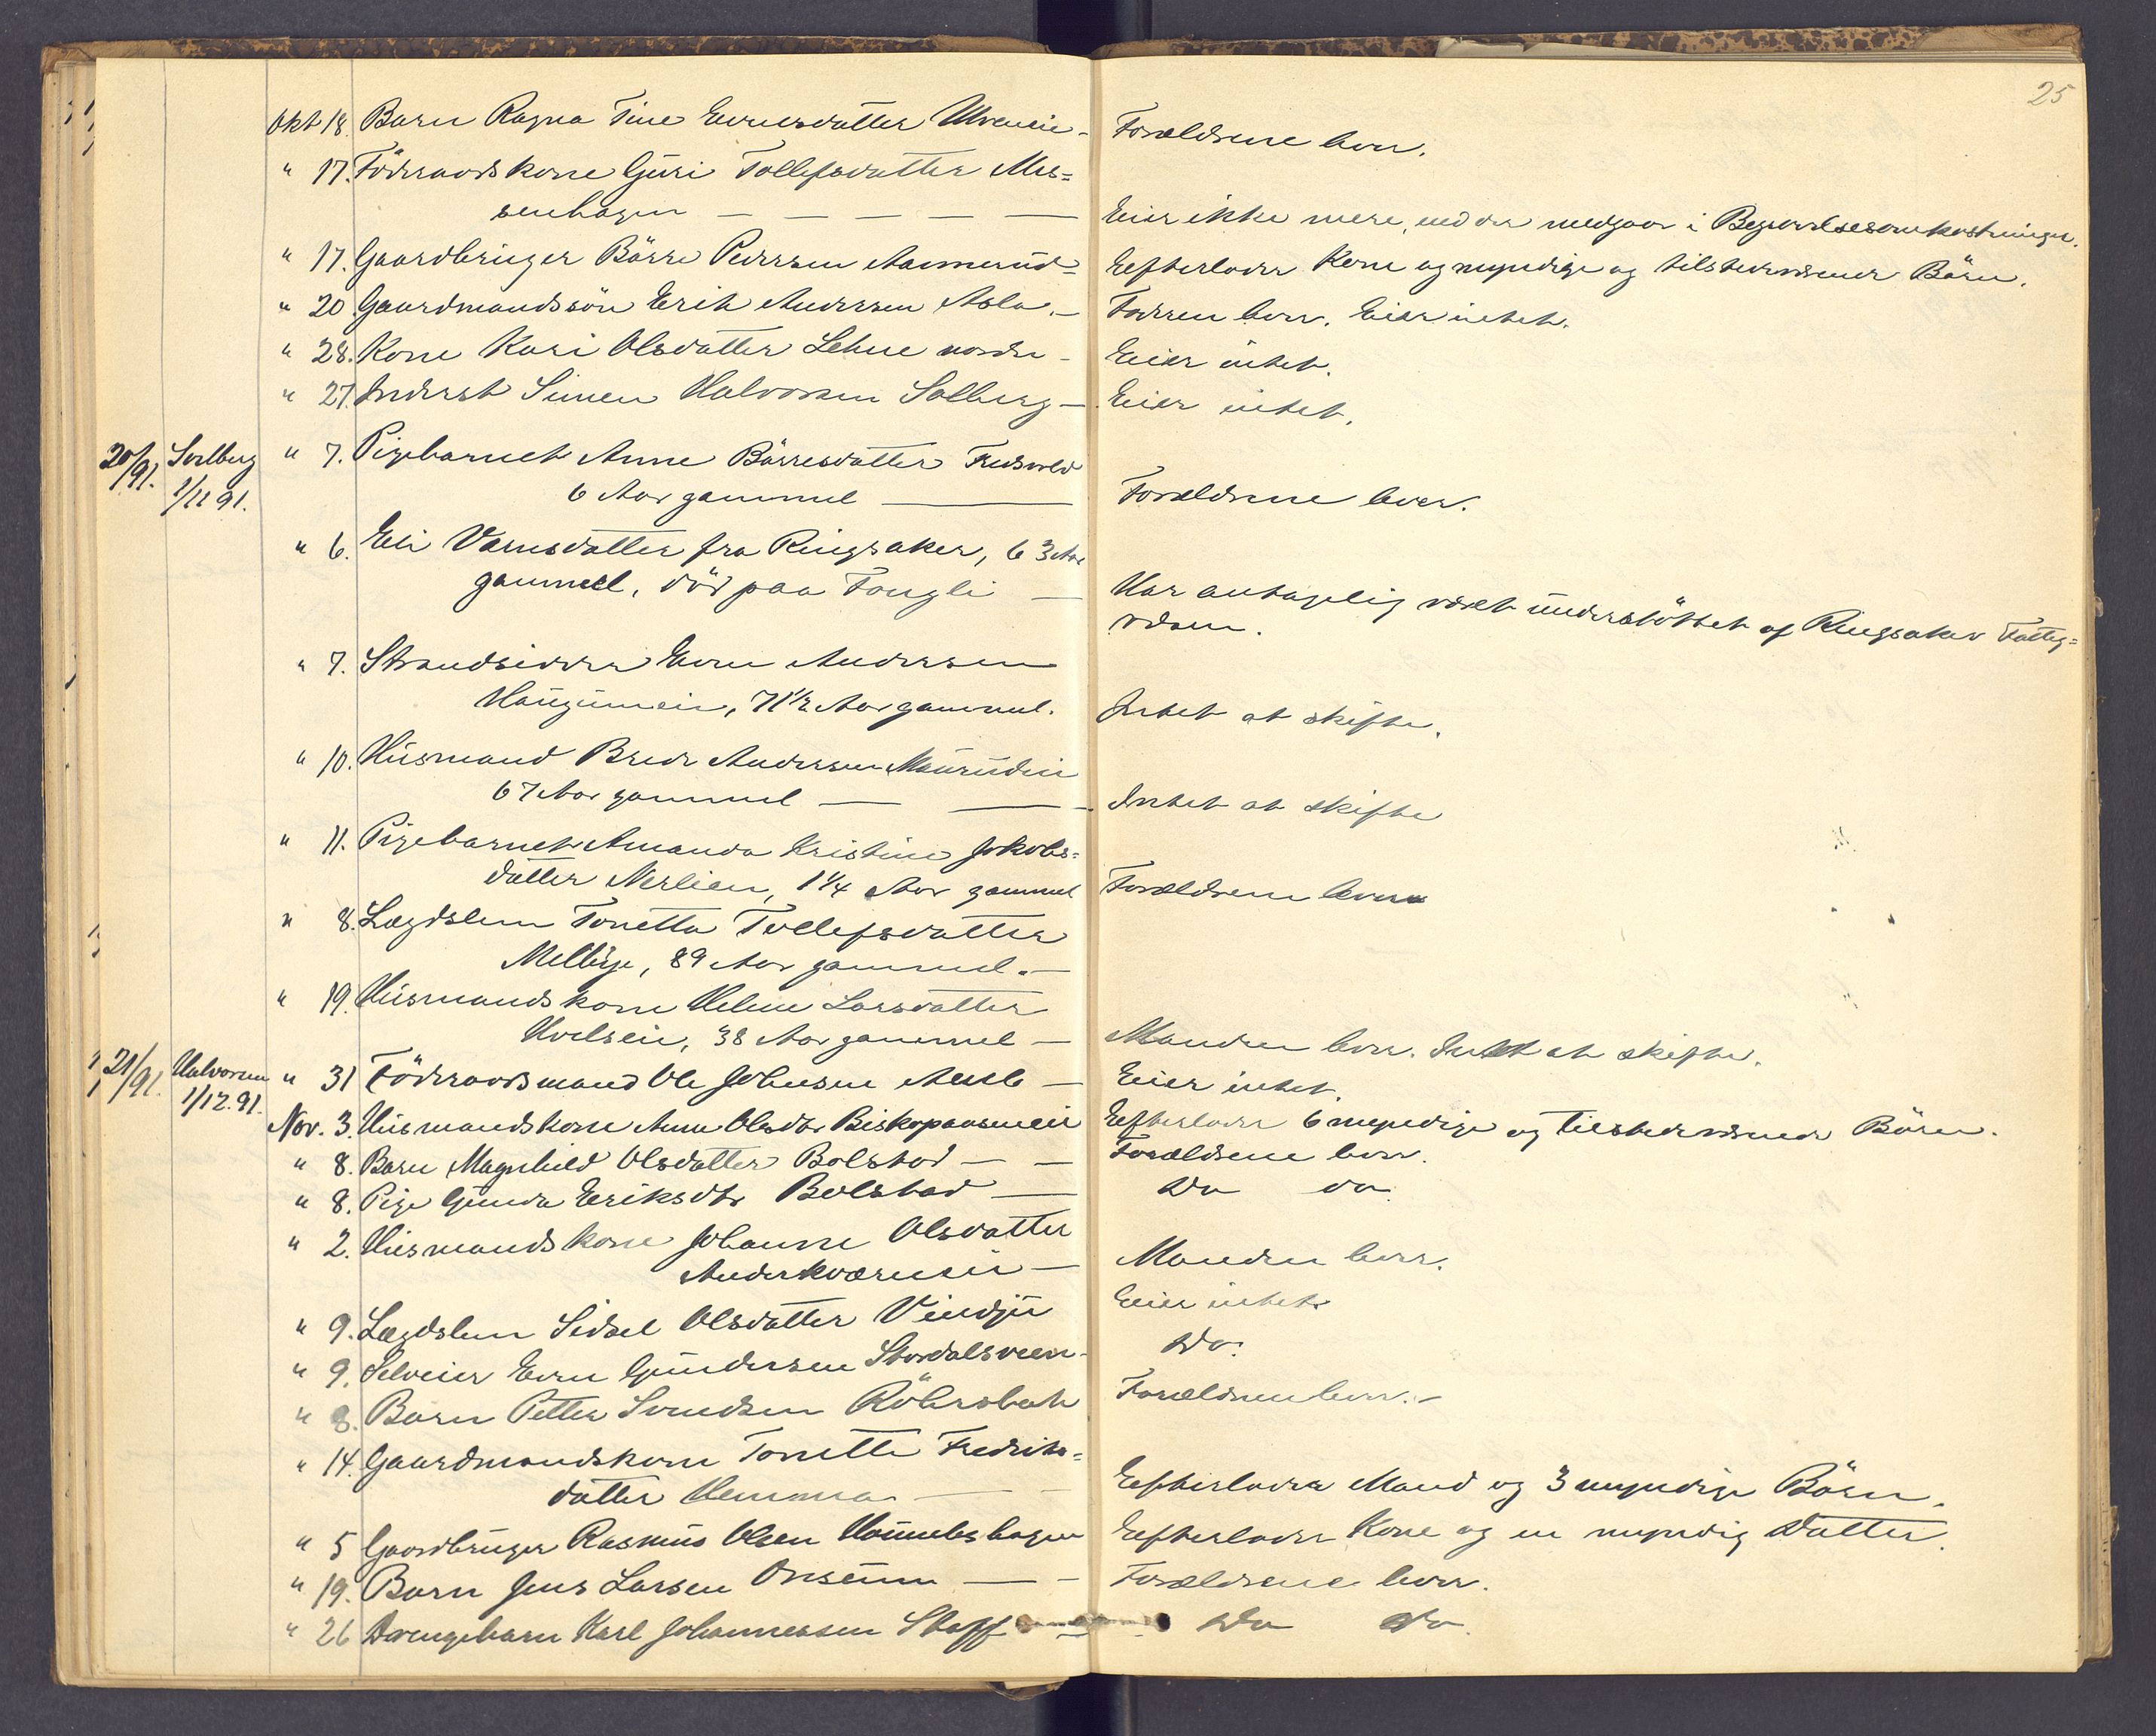 25
Okt 18. Barn Ragna Tine Evensdatter Ulveneie - Forældrene lever.
" 17. Föderaadskone Guri Tollefsdatter Mes=
senhagen - - - - - Eier ikke mere, end der medgaar i Begravelsesomkostninger.
" 17. Gaardbruger Börre Pedersen Aamerud - Efterlader Kone og myndige og tilstedeværende Börn.
" 20. Gaardmandssön Erik Andersen Asla. - Faderen lever. Eier intet.
" 28. Kone Kari Olsdatter Lehne nordre - Eier intet.
" 27. Inderst Simen Halvorsen Solberg - Eier intet.
20/91. Solberg 1/11 91. " 7. Pigebarnet Anne Börresdatter Fredsvold
6 Aar gammel - Forældrene lever.
" 6. Eli Varnsdatter fra Ringsaker, 63 Aar
gammel, död paa Fougli - Har antagelig været understöttet af Ringsaker Fattig=
væsen.
" 7. Strandsidder Even Andersen
Haugumeie, 71 1/2 Aar gammel. Intet at skifte.
" 10. Husmand Brede Andersen Maurudeie
67 Aar gammel - - Intet at skifte
" 11. Pigebarnet Amanda Kristine Jakobs=
datter Nerlien, 1 1/4 Aar gammel Forældrene lever
" 8. Lægdslem Tonetta Tollefsdatter
Melbye, 89 Aar gammel. -
" 19. Husmandskone Helene Larsdatter
Hvelseie, 38 Aar gammel - Manden lever. Intet at skifte.
21/91. Halvorsen 1/12.91. " 31 Föderaadsmand Ole Johnsen - Eier intet.
Nov. 3. Husmandskone Anne Olsdtr Biskopaaseneie Efterlader 6 myndige og tilstedeværende Börn.
" 8. Barn Magnhild Olsdatter Bolstad - - Forældrene lever.
" 8. Pige Gunda Eriksdtr Bolstad - Do do.
" 2. Husmandskone Johanne Olsdatter
Anderkværneie - Manden lever.
" 9. Lægdslem Sidsel Olsdatter Vindju Eier intet
" 9. Selveier Even Gundersen Stordalsveen - Do.
" 8. Barn Petter Svendsen Röhrsbak Forældrene lever. -
" 14. Gaardmandskone Tonette Fredriks=
datter Hemma - - Efterlader Mand og 3 myndige Börn.
" 5 Gaardbruger Rasmus Olsen Hommelshagen Efterlader Kone og en myndig Datter.
" 19. Barn Jens Larsen Onsum - - Forældrene lever.
" 26 Drengebarn Karl Johannessen Staff - Do Do.